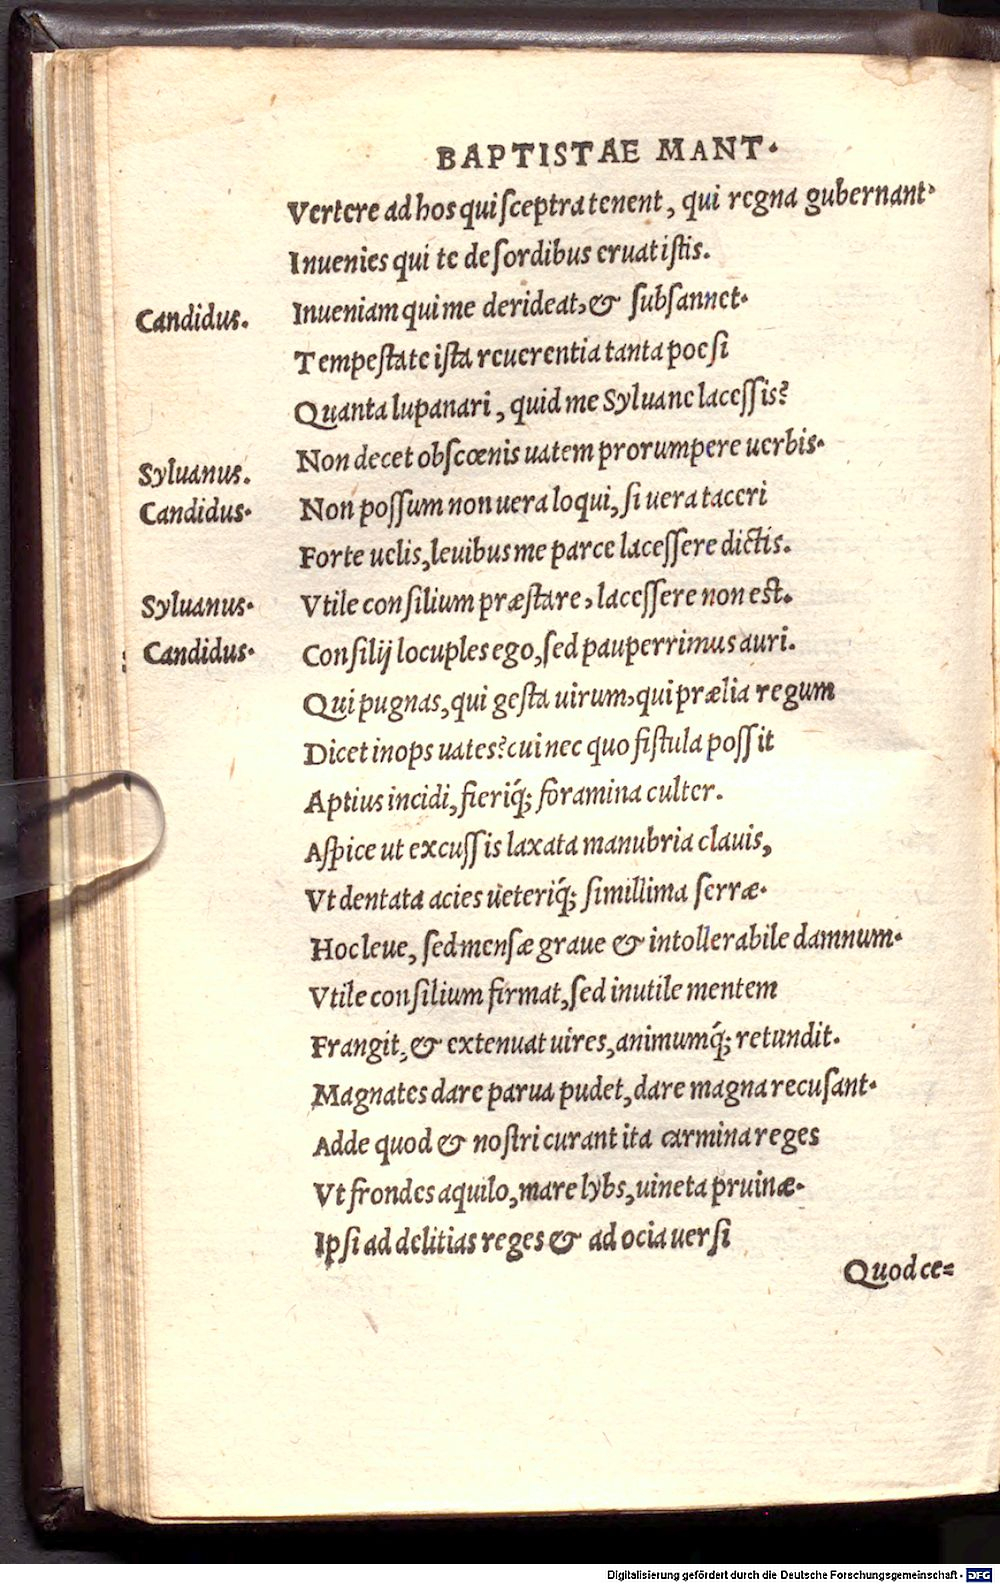 BAPTISTAE MANT.
Vertere ad hos qui ſceptra tenent, qui regna gubernant.
Inuenies qui te de ſordibus eruat iſtis.
Candidus. Inueniam qui me derideat, & ſubſannet.
Tempeſtate iſta reuerentia tanta poeſi
Quanta lupanari, quid me Syluane laceſſis?
Syluanus. Non decet obſcœnis uatem prorumpere uerbis.
Candidus. Non poſſum non uera loqui, ſi uera taceri
Forte uelis, leuibus me parce laceſſere dictis.
Syluanus. Vtile conſilium præſtare, laceſſere non est.
Candidus. Conſilij locuples ego, ſed pauperrimus auri.
Qui pugnas, qui geſta uirum, qui prælia regum
Dicet inops uates? cui nec quo fiſtula poſſit
Aptius incidi, fieriq́; foramina culter.
Aſpice ut excuſſis laxata manubria clauis,
Vt dentata acies ueteriq́; ſimillima ſerræ.
Hoc leue, ſed menſæ graue & intollerabile damnum.
Vtile conſilium firmat, ſed inutile mentem
Frangit, & extenuat uires, animumq́; retundit.
Magnates dare parua pudet, dare magna recuſant.
Adde quod & noſtri curant ita carmina reges
Vt frondes aquilo, mare lybs, uineta pruinæ.
Ipſi ad delitias reges & ad ocia uerſi
Quod ce=
Digitalisierung gefördert durch die Deutsche Forschungsgemeinschaft - DFG